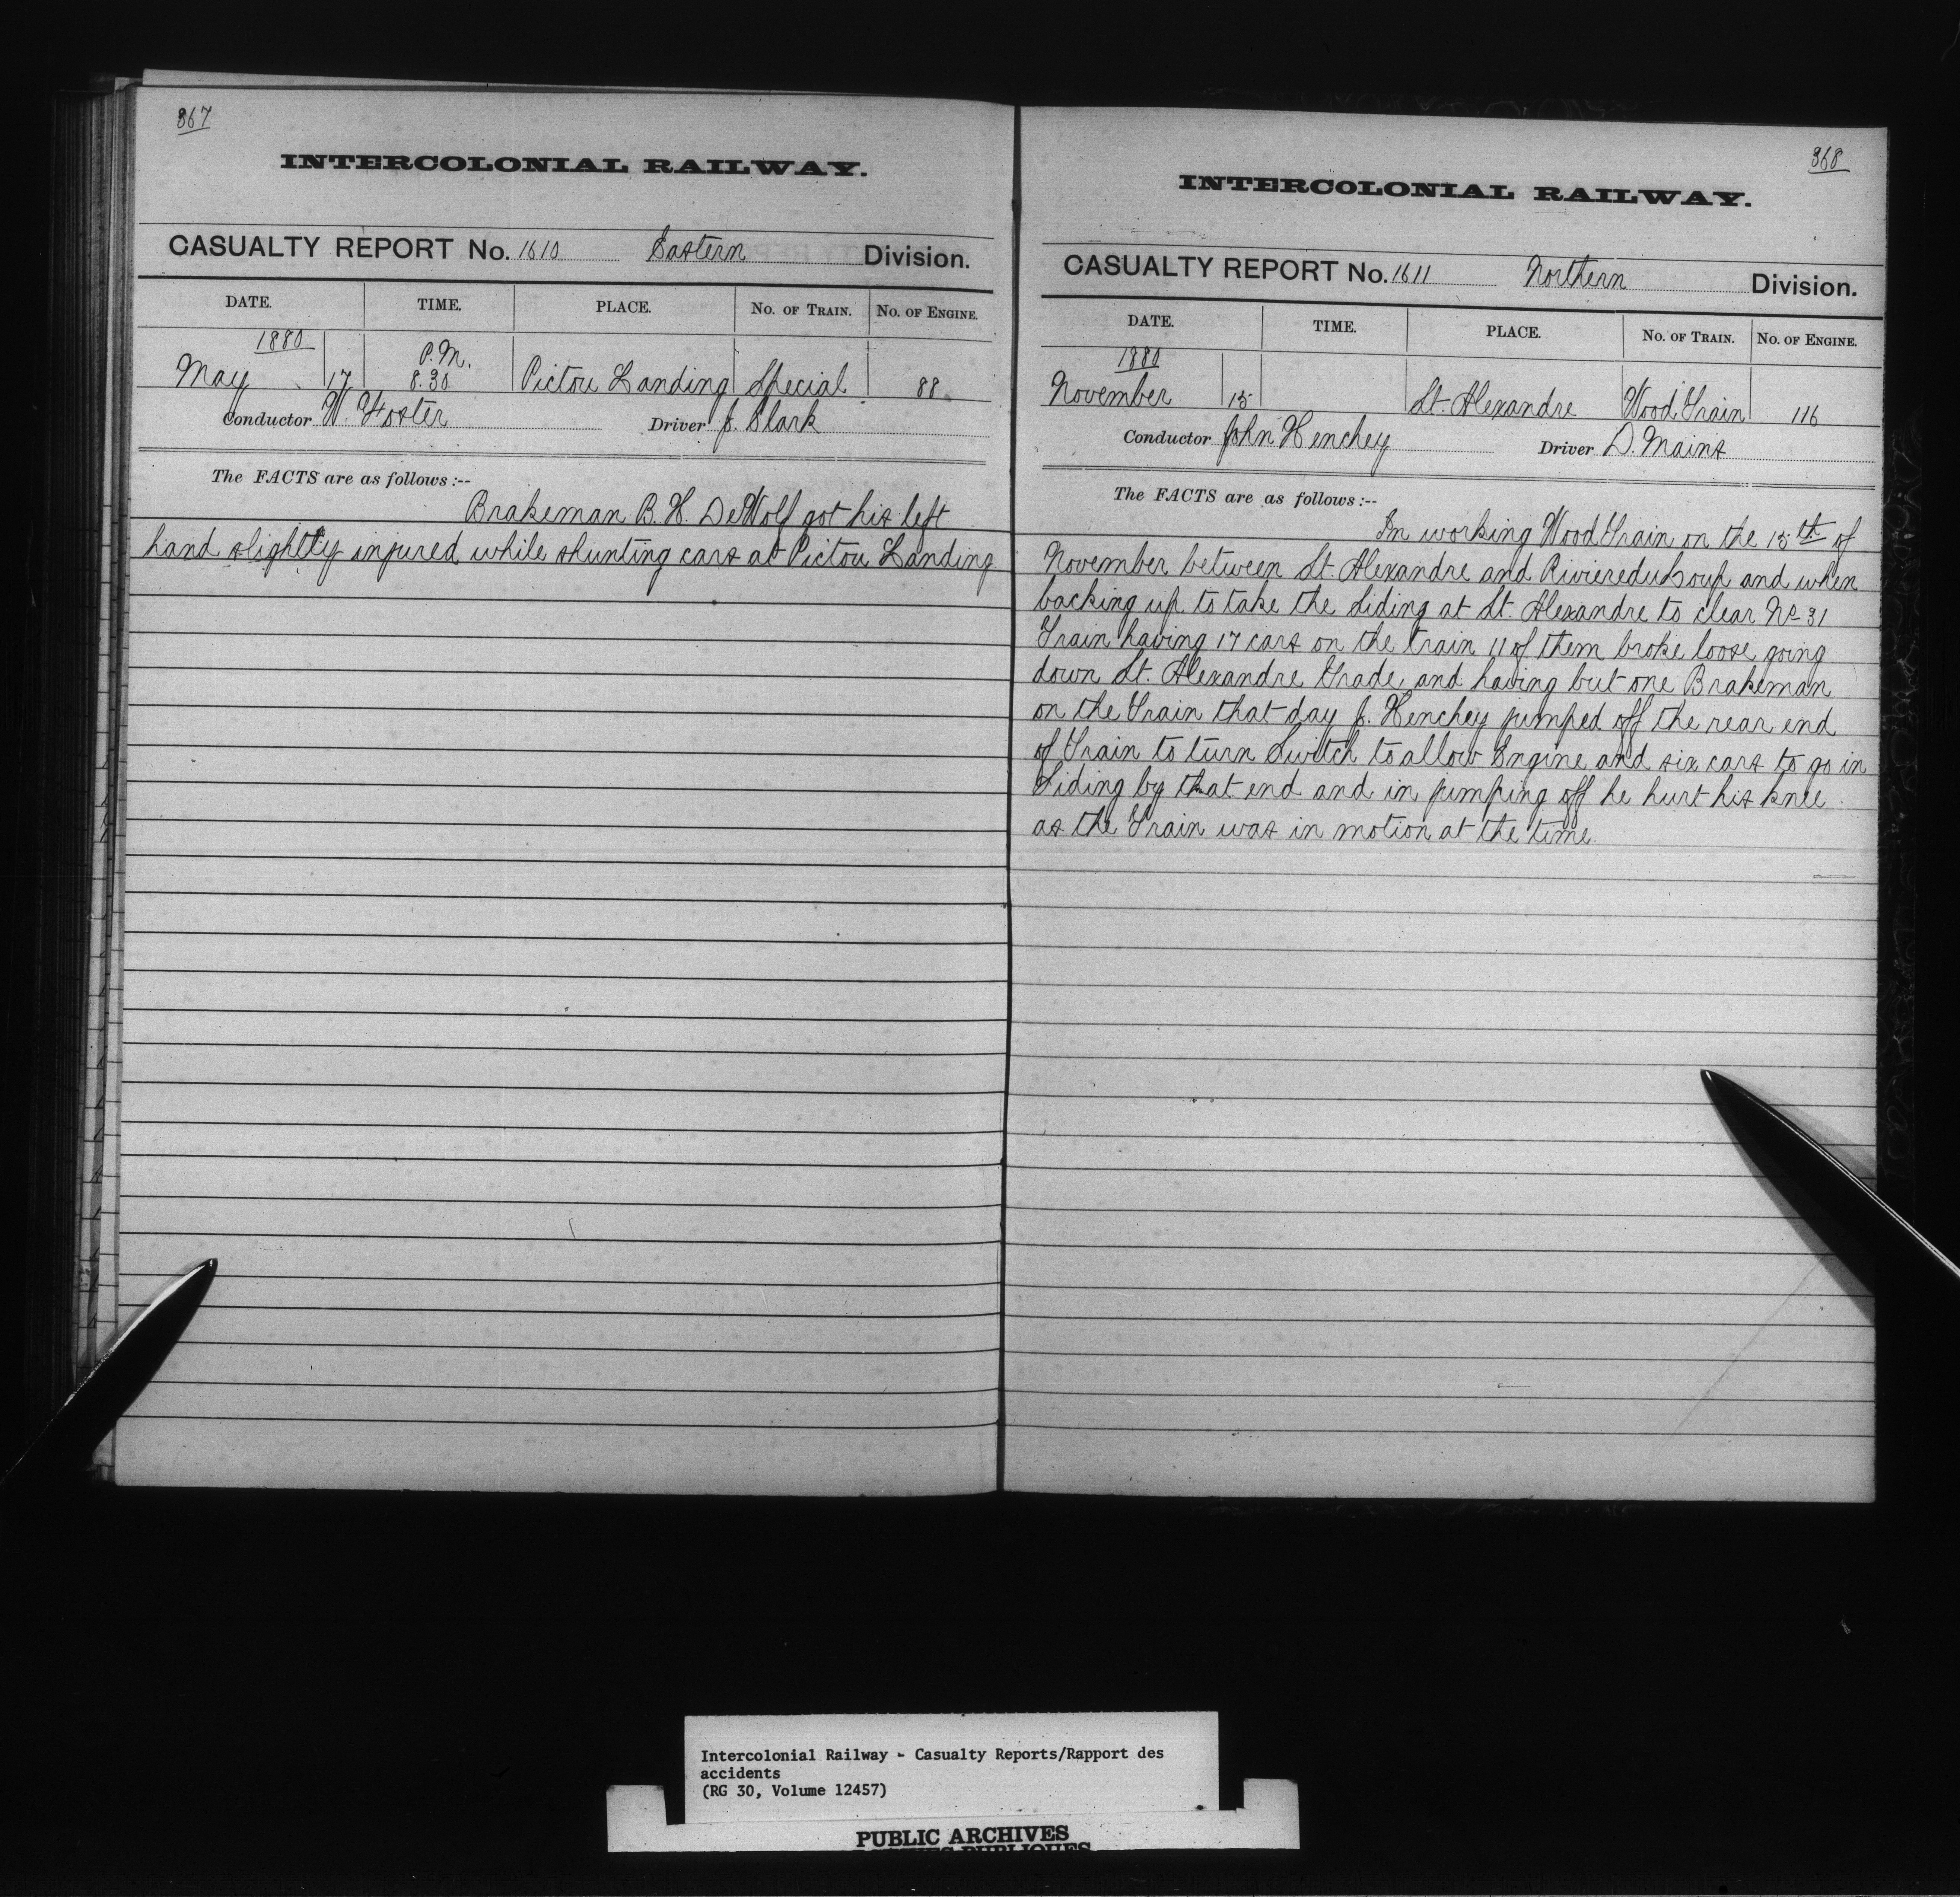 367
INTERCOLONIAL RAILWAY.
CASUALTY REPORT No. 1610 Eastern Division.
DATE. TIME. PLACE. No. of Train. No. of Engine.
1880 P.M.
May 17 8.30 Pictou Landing Special 88
Conductor W. Foster Driver J. Clark
The FACTS are as follows:--
Brakeman B. H. DeWolf got his left
hand slightly injured while shunting cars at Pictou Landing
368
INTERCOLONIAL RAILWAY.
CASUALTY REPORT No. 1611 Northern Division.
DATE. TIME. PLACE. No. of Train. No. of Engine.
1880
November 15 St. Alexandre Wood Train 116
Conductor John Henchey Driver D. Mains
The FACTS are as follows:--
In working Wood Train on the 15th of
November between St. Alexandre and Riviere du Loup and when
backing up to take the Siding at St. Alexandre to clear No 31
Train having 17 cars on the train 11 of them broke loose going
down St. Alexandre Grade, and having but one Brakeman
on the Train that day J. Henchey jumped off the rear end
of Train to turn Switch to allow Engine and six cars to go in
Siding by that end and in jumping off he hurt his knee
as the Train was in motion at the time.
Intercolonial Railway - Casualty Reports/Rapport des
accidents
(RG 30, Volume 12457)
PUBLIC ARCHIVES